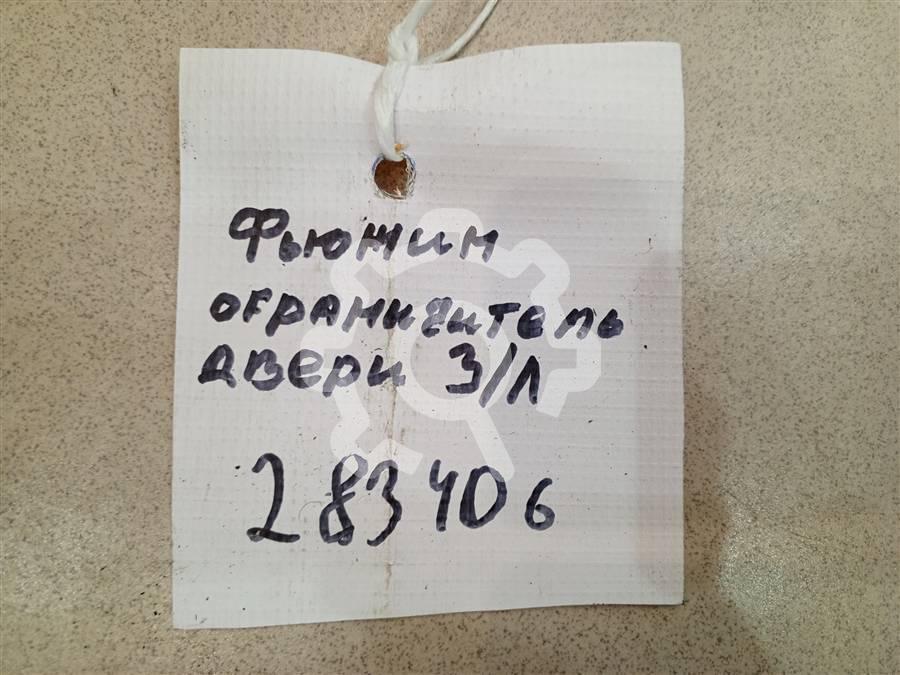 Фьюжин
ограничитель
двери З/Л
283406